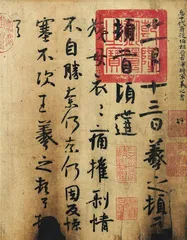 一月十三日羲之頓首
頓首頃遘
姨母哀哀痛摧剝情
不自勝奈何奈何因反慘
塞不次王羲之頓首頓
首